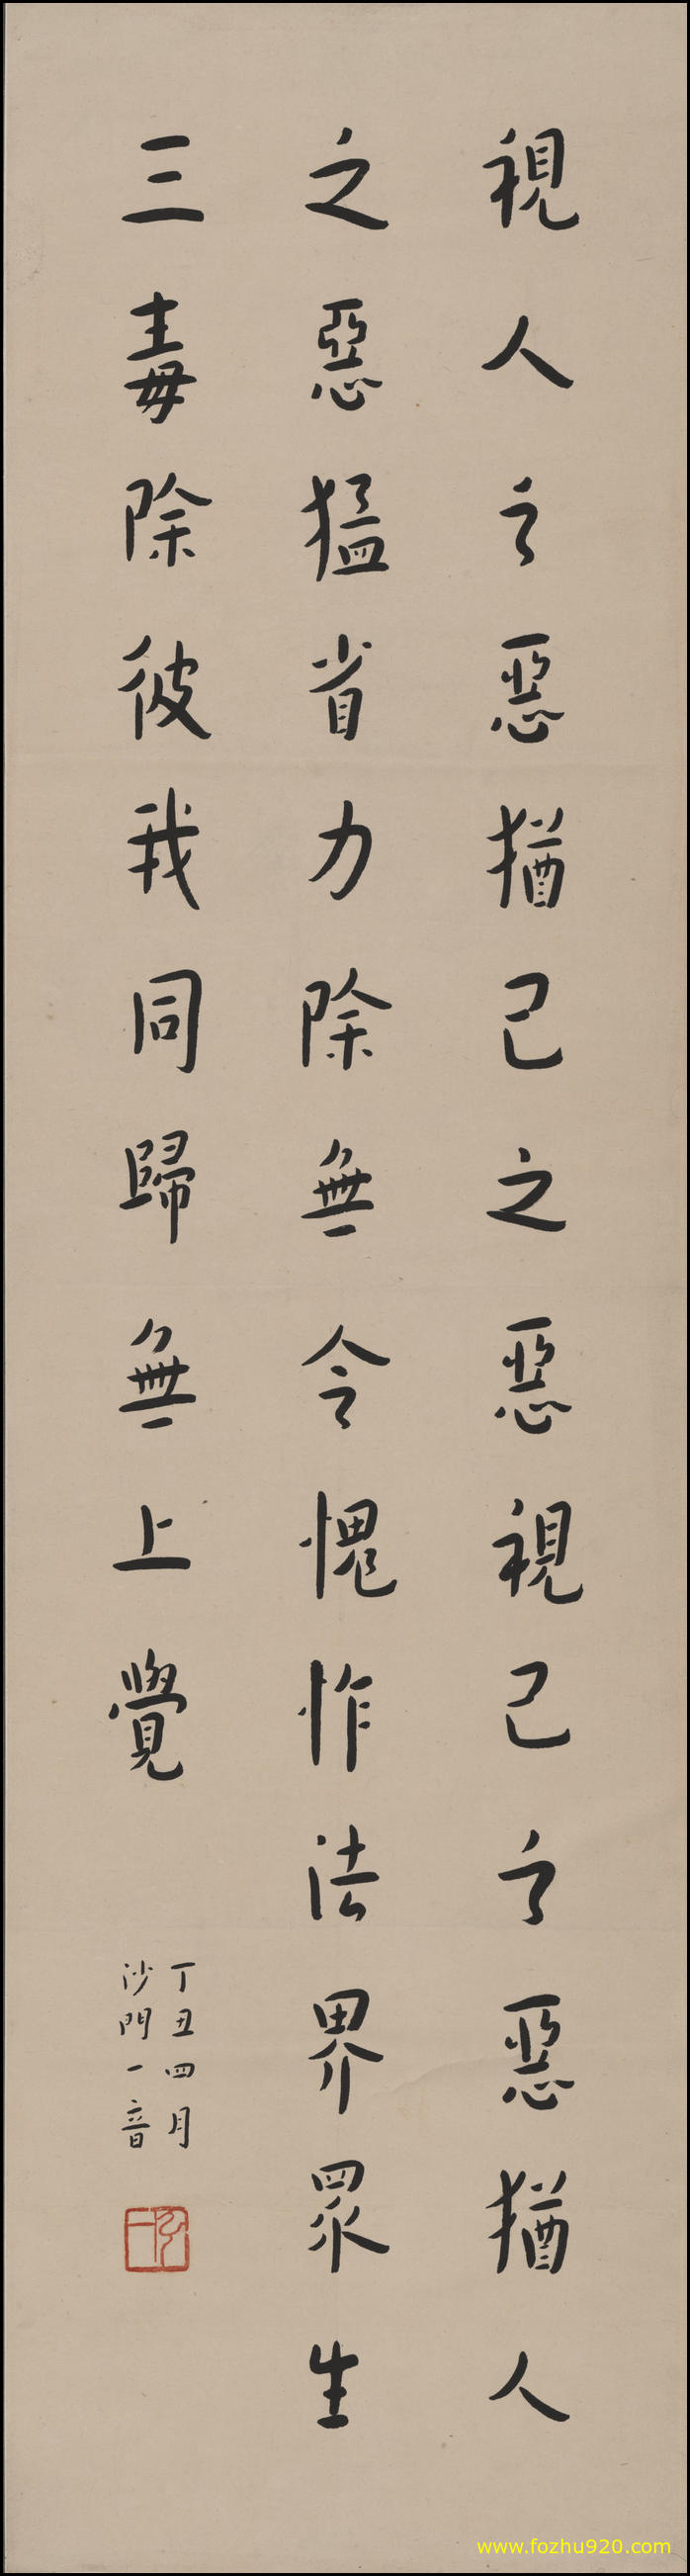 視人之惡猶己之惡視己之惡猶人
之惡猛省力除無令愧怍法界眾生
三毒除彼我同歸無上覺
丁丑四月
沙門一音
www.fozhu920.com